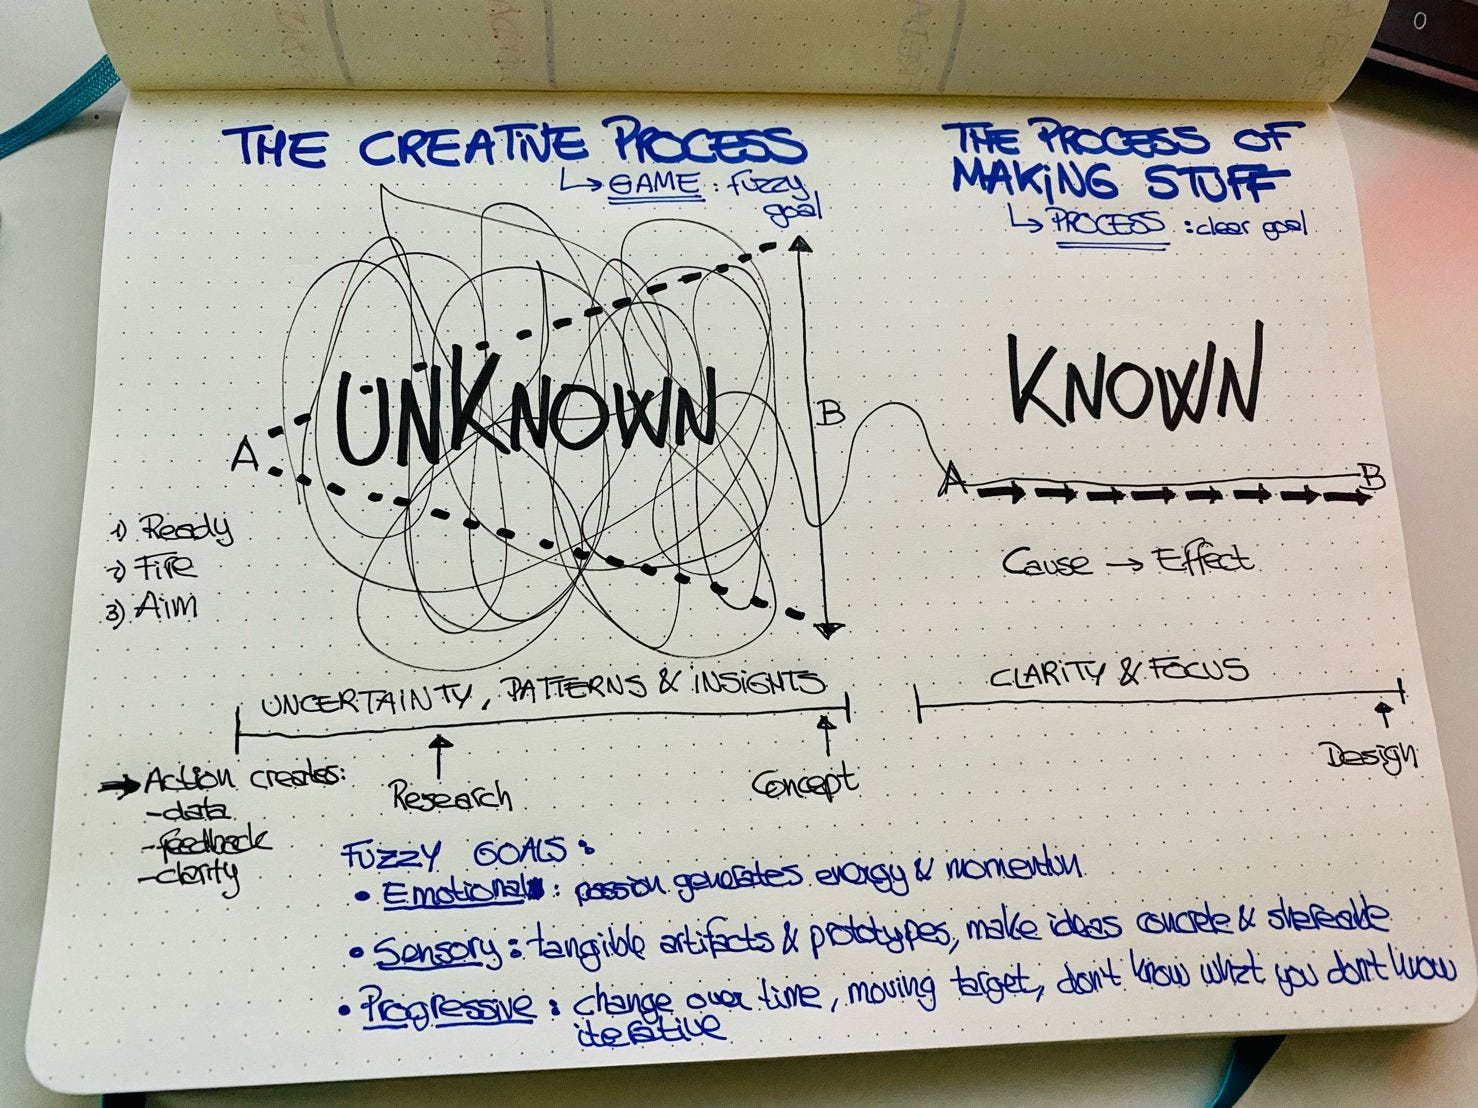 THE CREATIVE PROCESS
↳ GAME : fuzzy
goal
THE PROCESS OF
MAKING STUFF
↳ PROCESS : clear goal
UNKNOWN
A
B
1) Ready
2) Fire
3) Aim
KNOWN
A
B
Cause → Effect
UNCERTAINTY, PATTERNS & INSIGHTS
Research
Concept
CLARITY & FOCUS
Design
→ Action creates:
- data
- feedback
- clarity
FUZZY GOALS :
• Emotional : passion generates energy & momentum
• Sensory : tangible artifacts & prototypes, make ideas concrete & shareable
• Progressive : change over time, moving target, don't know what you don't know
iterative
O